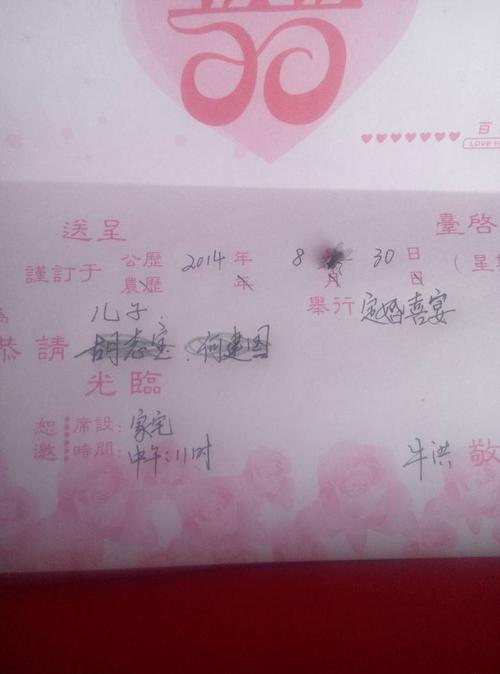 百
LOVE
送呈 臺啓
謹訂于 公歷 2014 年 8 30 日
農歷 年 月 日 (星
為 儿子 舉行 定婚喜宴
恭請 胡志宝、何建国
光臨
恕 席設: 家宅
邀 時間: 中午:11时
牛洪 敬